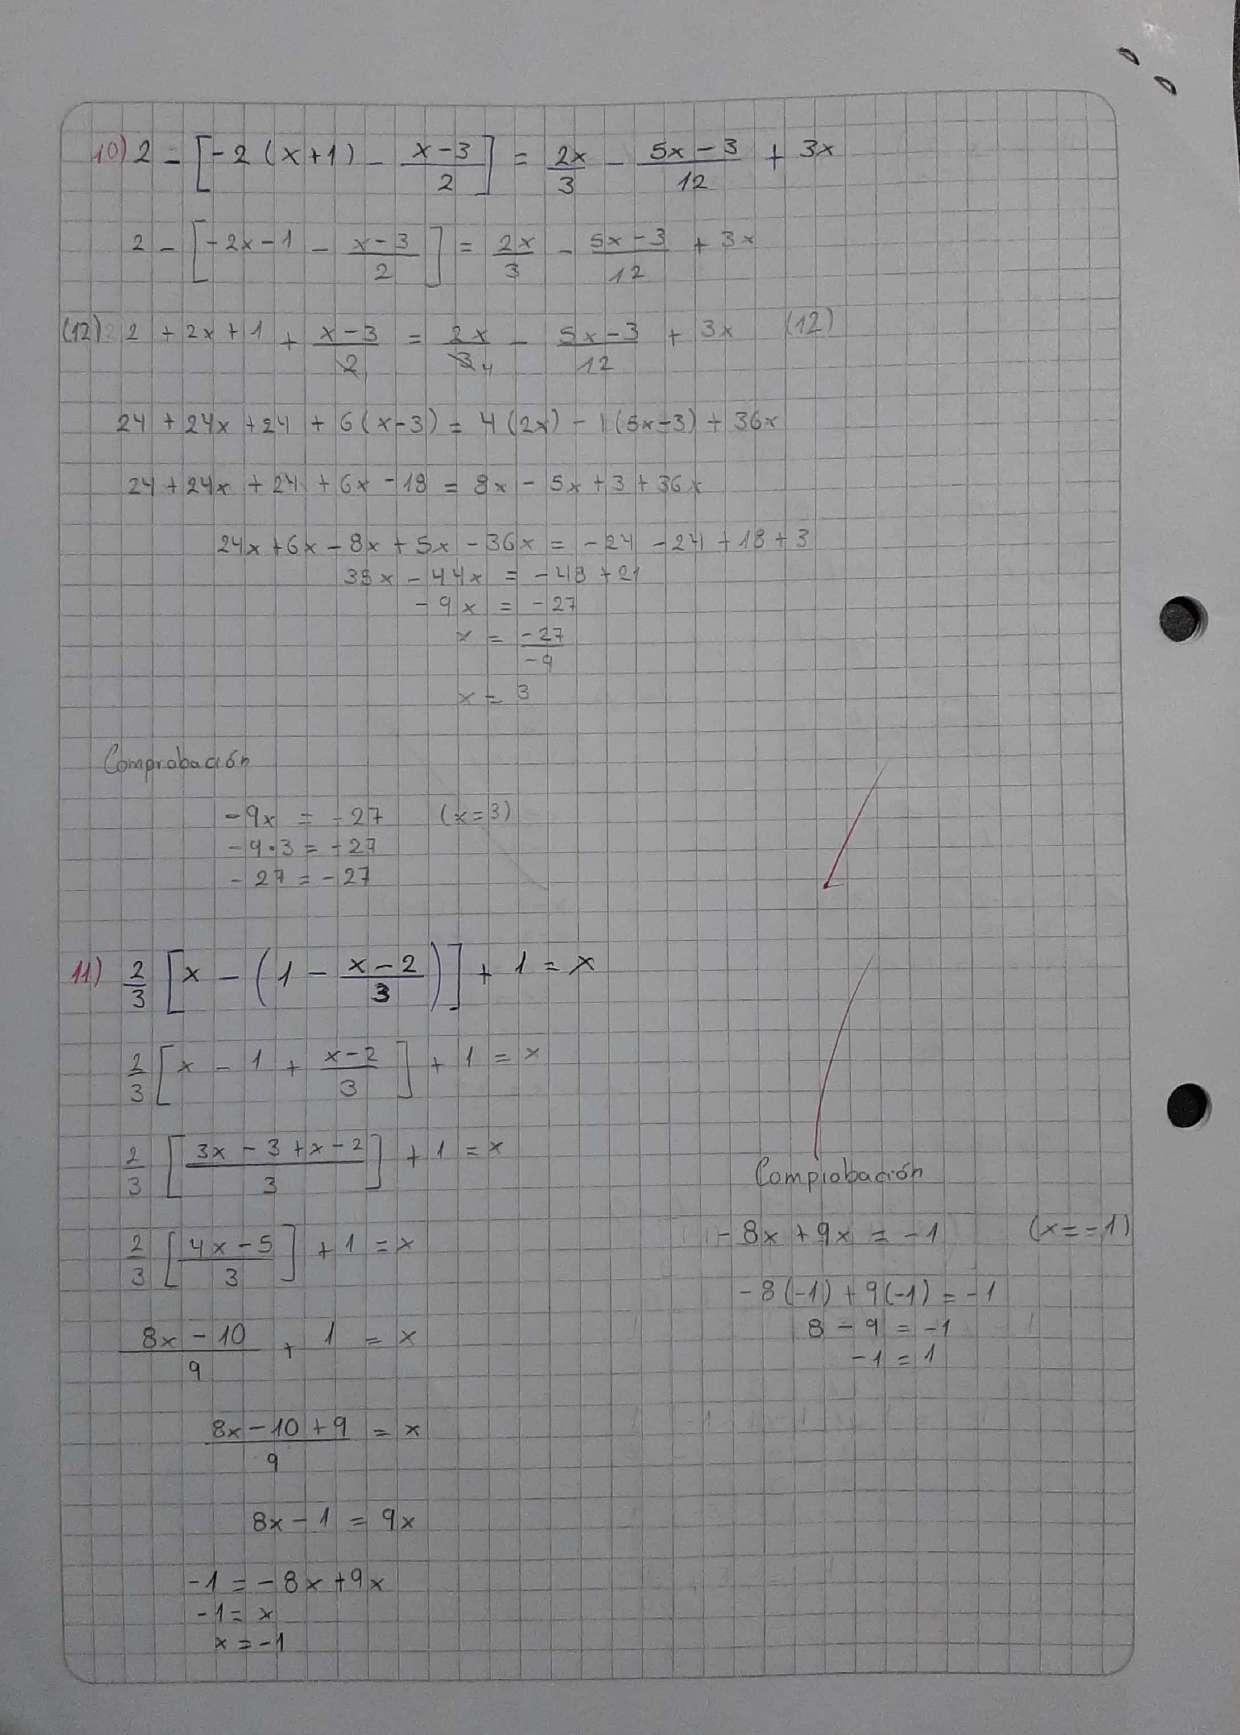 10) 2 - [-2(x+1) - (x-3)/2] = 2x/3 - (5x-3)/12 + 3x
2 - [-2x-1 - (x-3)/2] = 2x/3 - (5x-3)/12 + 3x
(12) 2 + 2x + 1 + (x-3)/2 = 2x/3 - (5x-3)/12 + 3x (12)
24 + 24x + 24 + 6(x-3) = 4(2x) - 1(5x-3) + 36x
24 + 24x + 24 + 6x - 18 = 8x - 5x + 3 + 36x
24x + 6x - 8x + 5x - 36x = -24 - 24 + 18 + 3
35x - 44x = -48 + 21
-9x = -27
x = -27/-9
x = 3
Comprobación
-9x = -27 (x=3)
-9·3 = -27
-27 = -27
11) 2/3 [x - (1 - (x-2)/3)] + 1 = x
2/3 [x - 1 + (x-2)/3] + 1 = x
2/3 [(3x - 3 + x - 2)/3] + 1 = x
2/3 [(4x-5)/3] + 1 = x
(8x - 10)/9 + 1 = x
(8x - 10 + 9)/9 = x
8x - 1 = 9x
-1 = -8x + 9x
-1 = x
x = -1
Comprobación
-8x + 9x = -1 (x=-1)
-8(-1) + 9(-1) = -1
8 - 9 = -1
-1 = 1